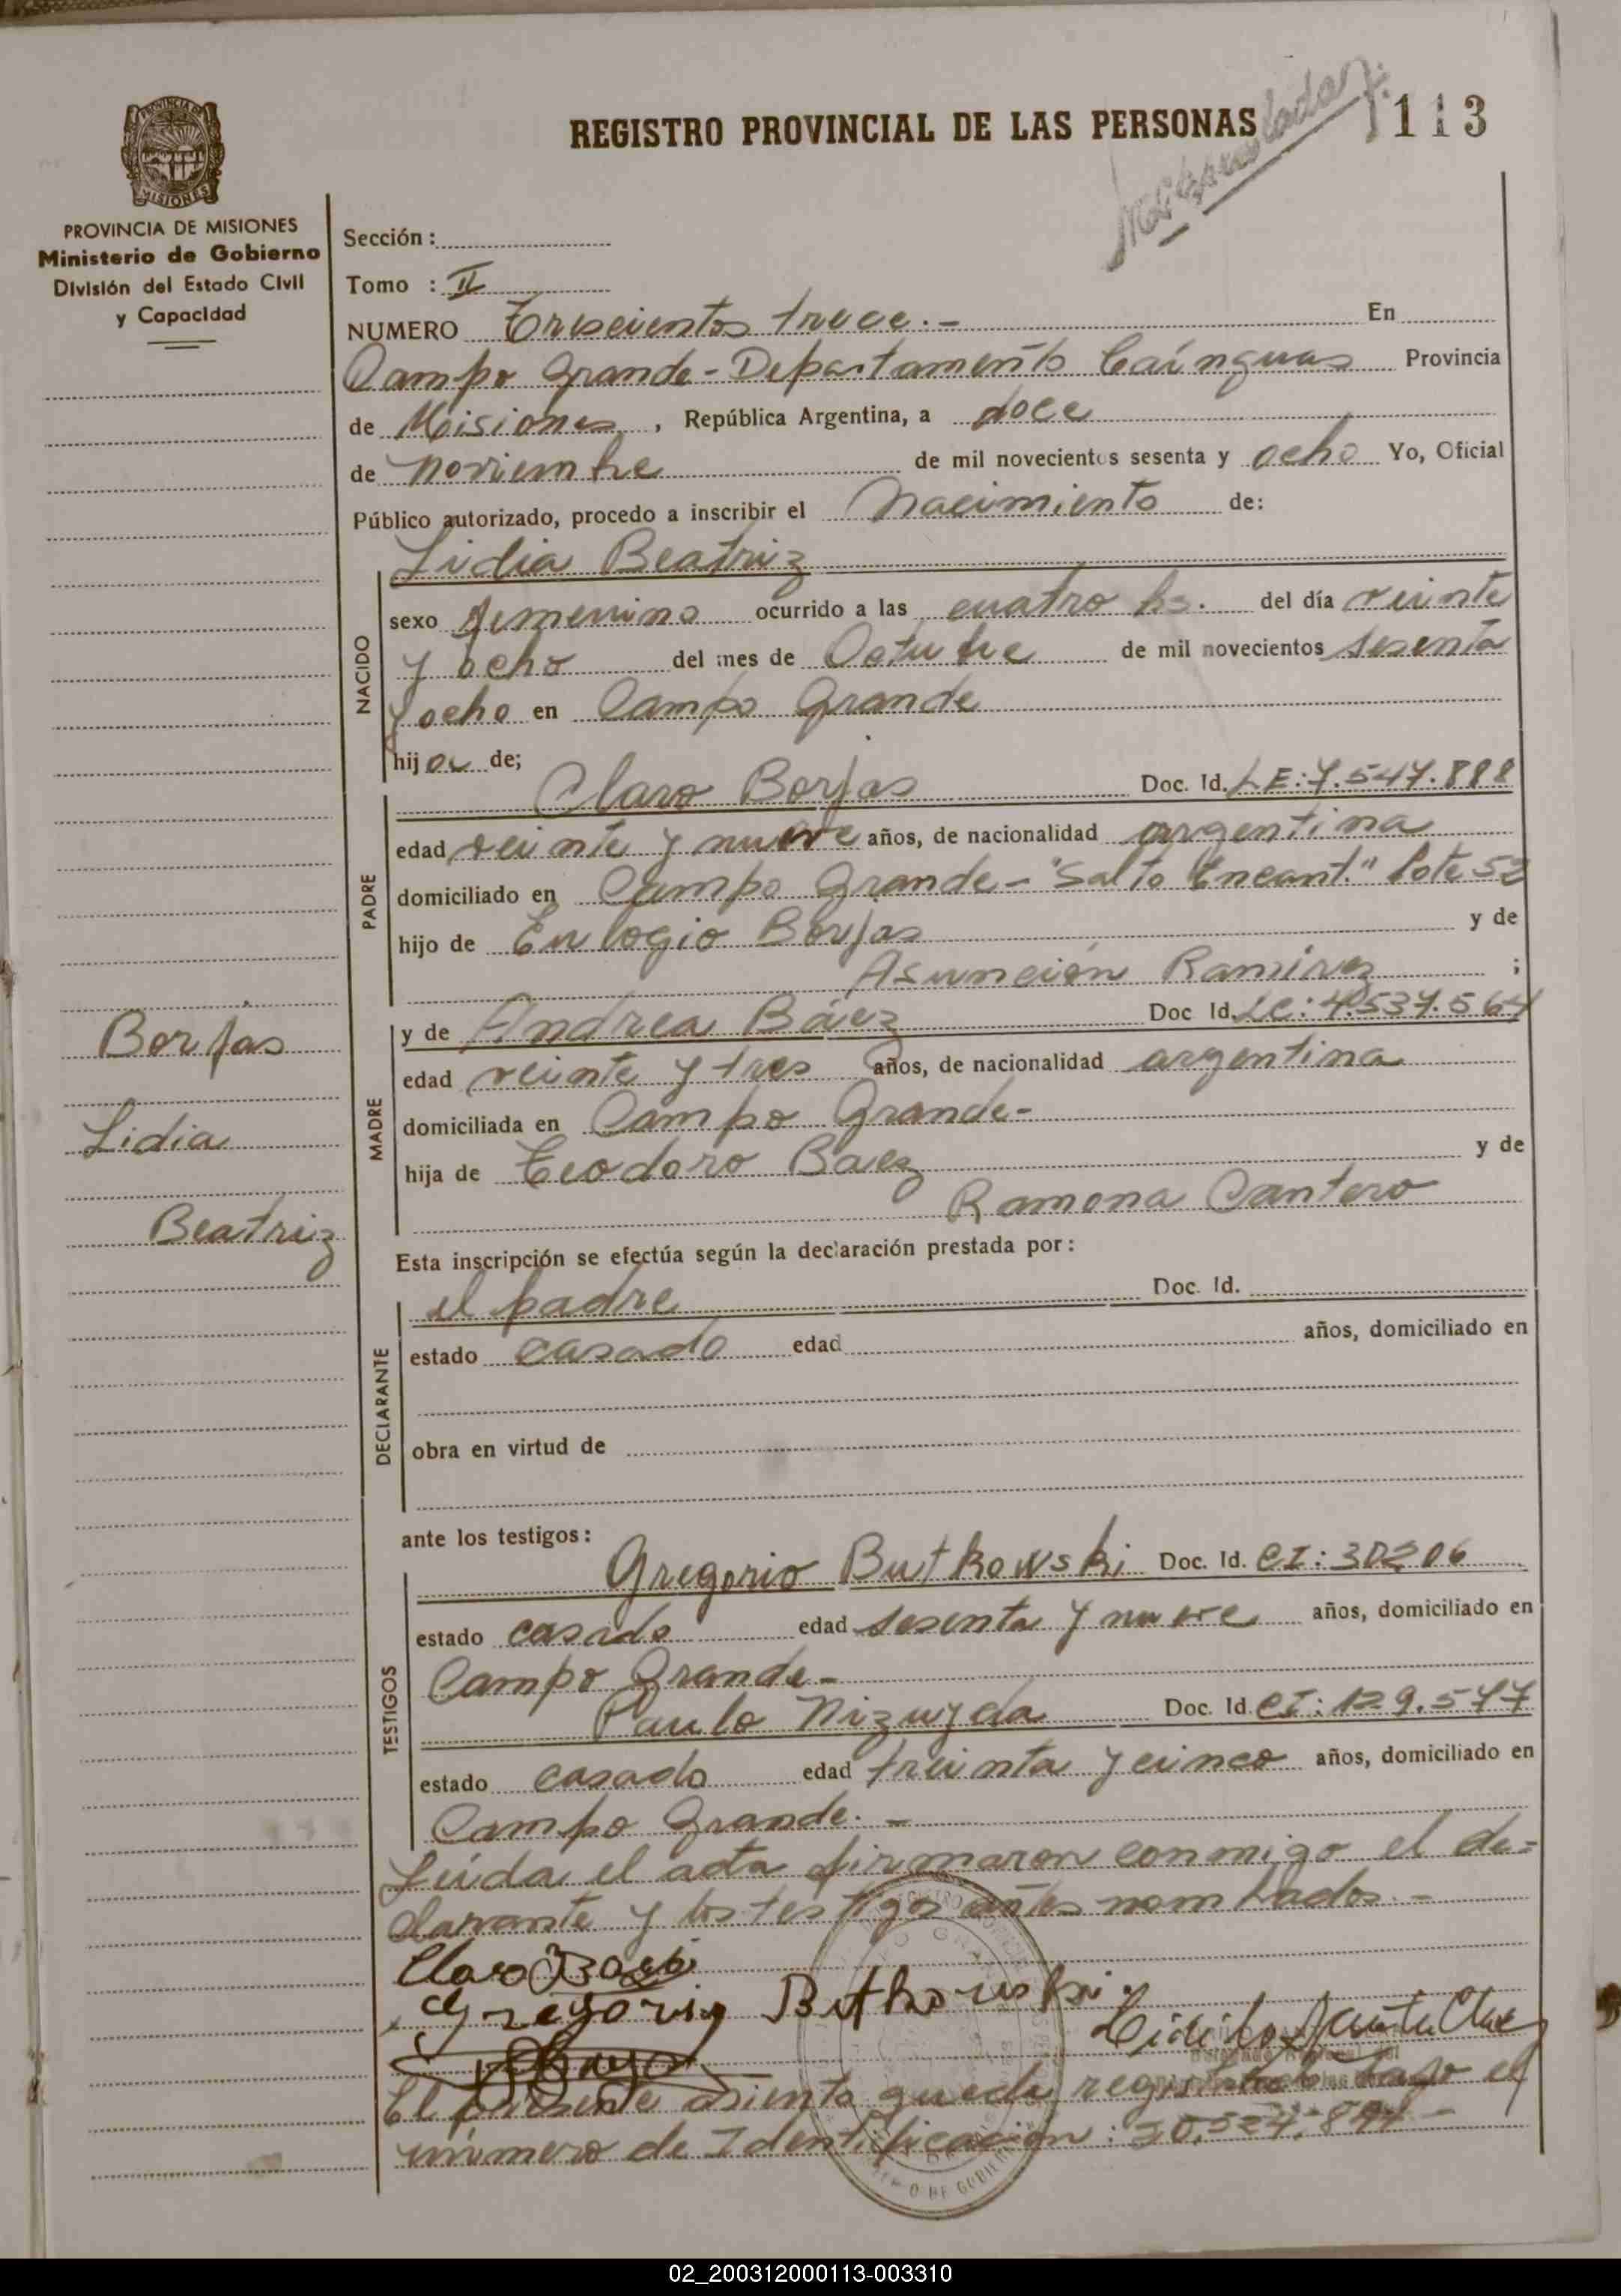 REGISTRO PROVINCIAL DE LAS PERSONAS
113
PROVINCIA DE MISIONES
Ministerio de Gobierno
División del Estado Civil
y Capacidad
Sección :
Tomo : II
NUMERO Trescientos trece.- En
Campo Grande - Departamento Caínguas Provincia
de Misiones, República Argentina, a doce
de noviembre de mil novecientos sesenta y ocho Yo, Oficial
Público autorizado, procedo a inscribir el Nacimiento de:
Lidia Beatriz
NACIDO
sexo femenino ocurrido a las cuatro hs. del día veinte
y ocho del mes de Octubre de mil novecientos sesenta
y ocho en Campo Grande
hija de;
Claro Borjas Doc. Id. LE: 7.547.888
PADRE
edad veinte y nueve años, de nacionalidad argentina
domiciliado en Campo Grande - "Salto Encant." Lote 52
hijo de Eulogio Borjas y de
Asunción Ramírez ;
y de Andrea Báez Doc Id. LC: 4.537.564
MADRE
edad veinte y tres años, de nacionalidad argentina
domiciliada en Campo Grande-
hija de Teodoro Baez y de
Ramona Cantero
Borjas
Lidia
Beatriz
Esta inscripción se efectúa según la declaración prestada por:
el padre Doc. Id.
DECLARANTE
estado casado edad años, domiciliado en
obra en virtud de
ante los testigos:
Gregorio Butkowski Doc. Id. CI: 30206
TESTIGOS
estado casado edad sesenta y nueve años, domiciliado en
Campo Grande-
Paulo Nizuyda Doc. Id. CI: 129.577
estado casado edad treinta y cinco años, domiciliado en
Campo Grande.-
Leída el acta firmaron conmigo el de=
clarante y los testigos antes nombrados.-
Claro
Gregorio Butkowski
El presente asiento queda registrado bajo el
número de Identificación: 20.324.894-
02_200312000113-003310